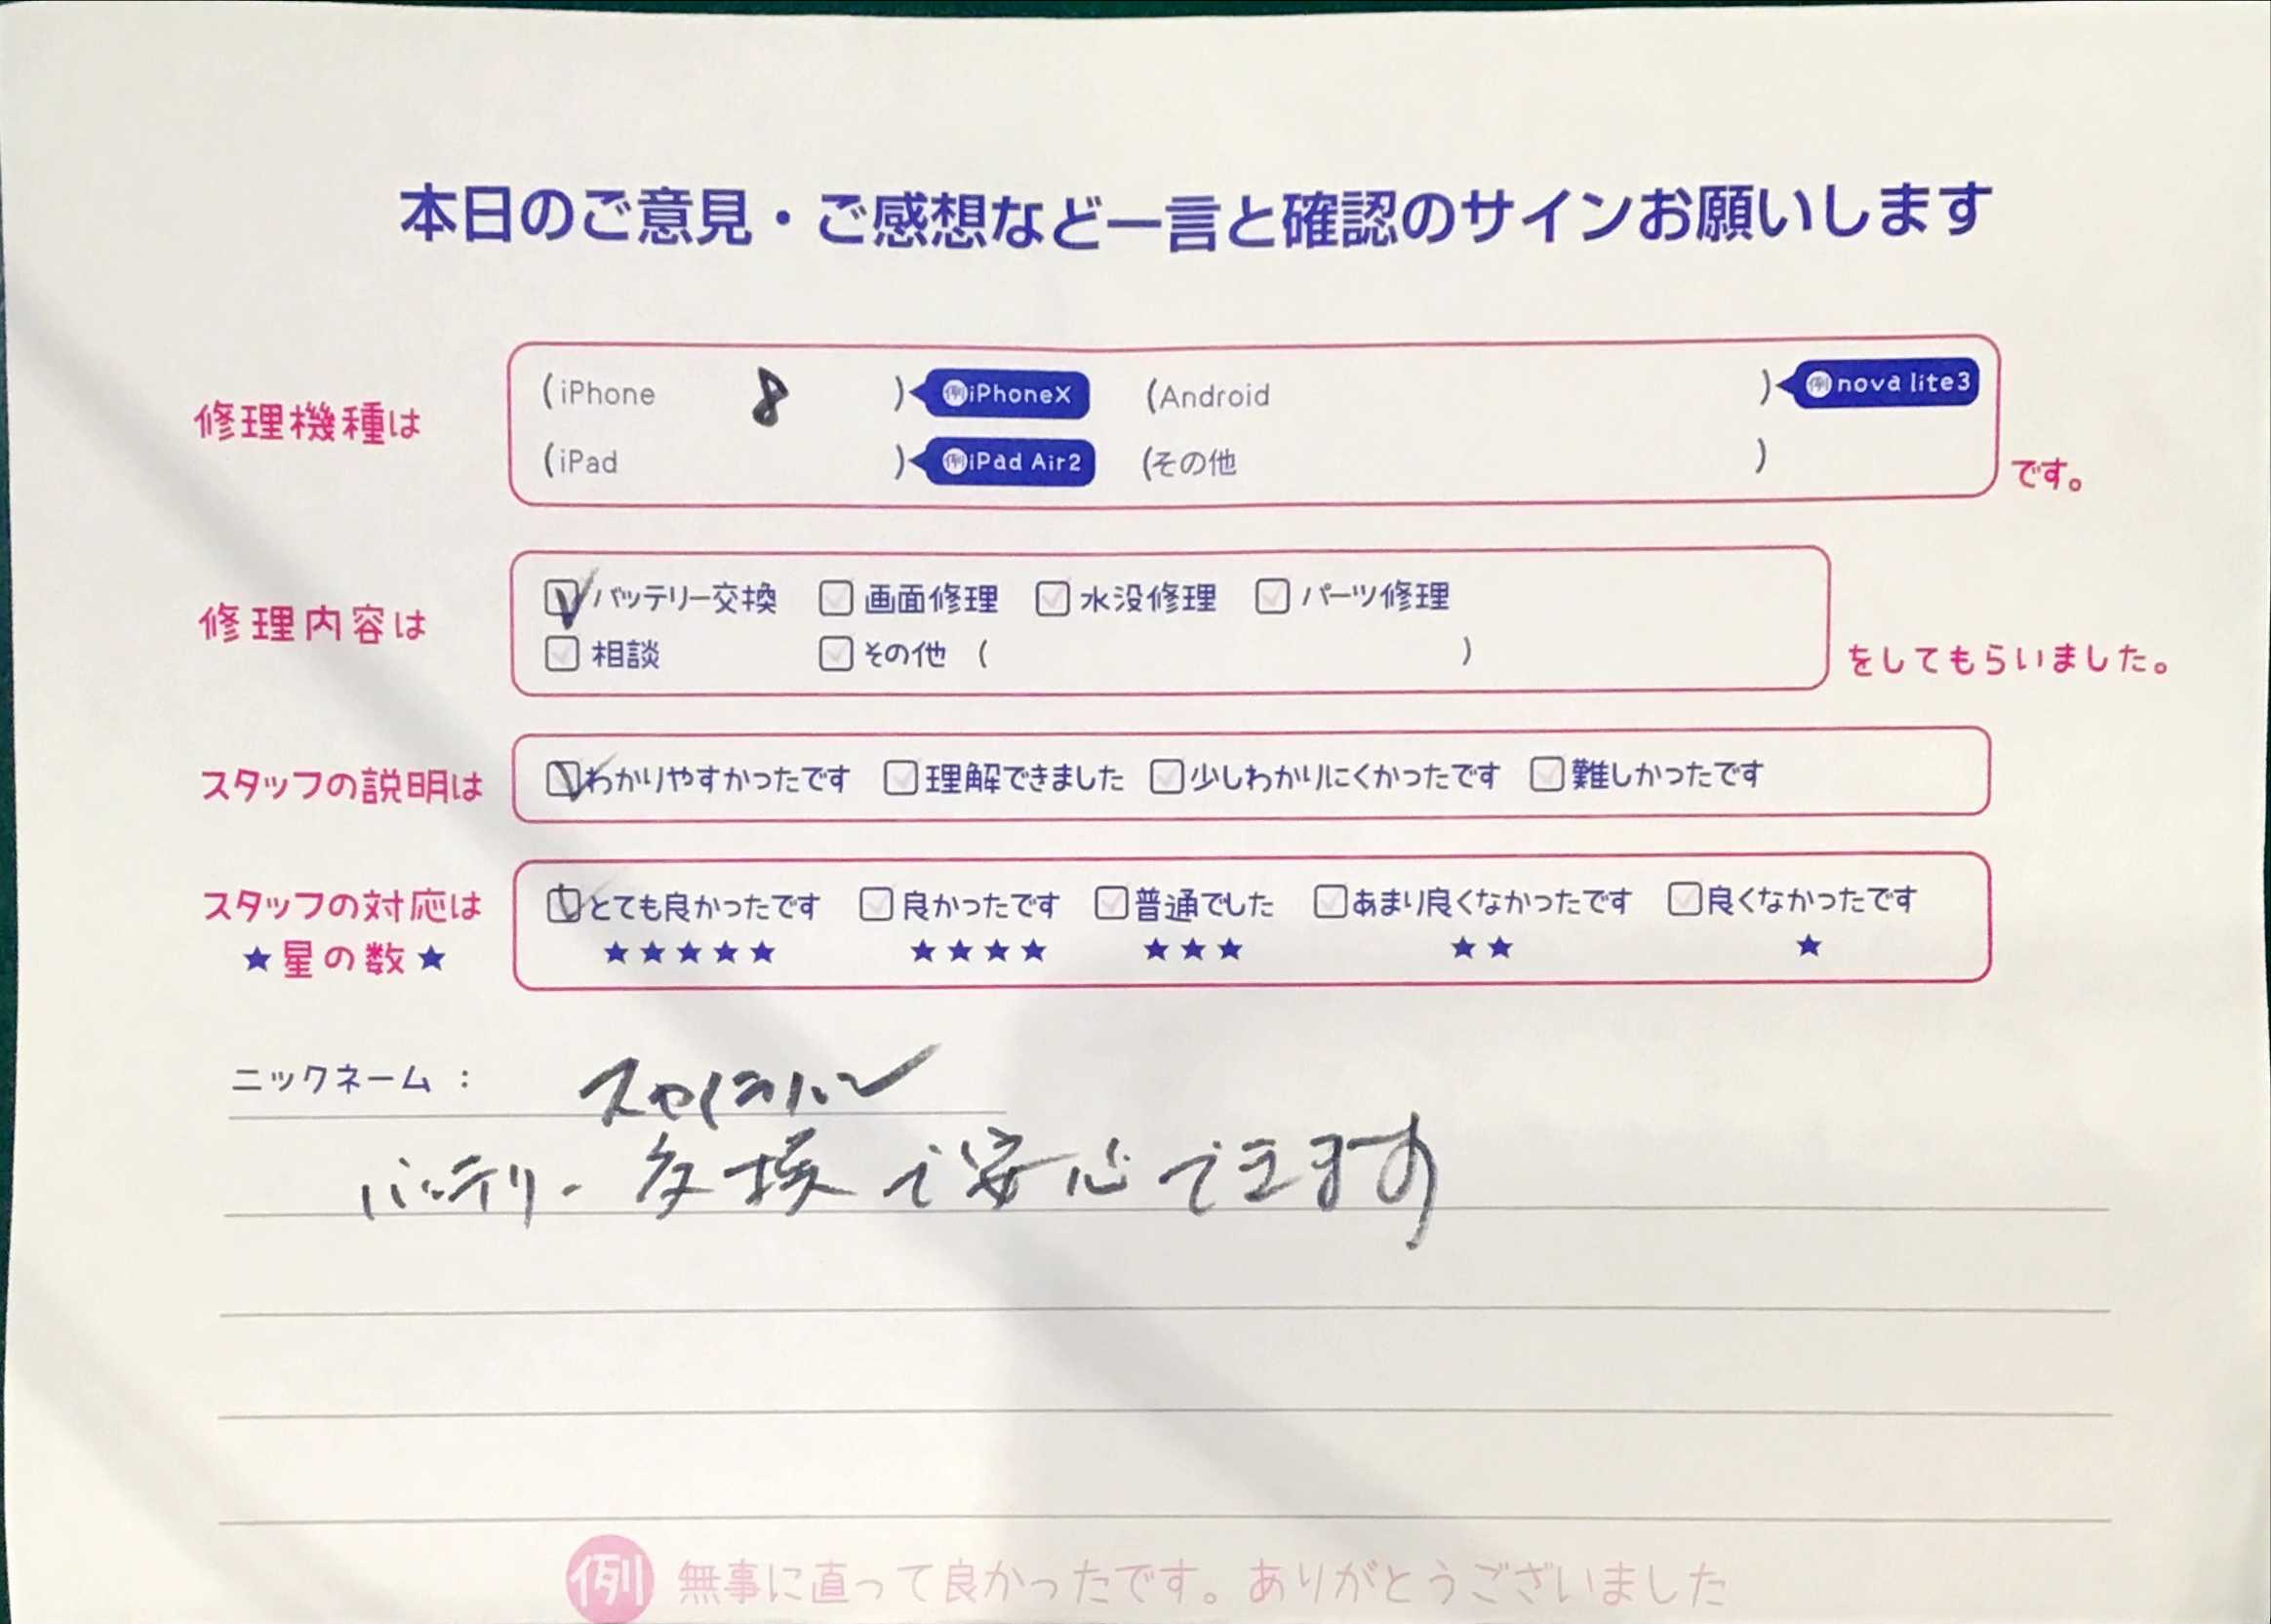 本日のご意見・ご感想など一言と確認のサインお願いします
修理機種は
(iPhone 8 ) 例iPhoneX (Android ) 例nova lite3
(iPad ) 例iPad Air2 (その他 ) です。
修理内容は
バッテリー交換 画面修理 水没修理 パーツ修理
相談 その他 ( ) をしてもらいました。
スタッフの説明は わかりやすかったです 理解できました 少しわかりにくかったです 難しかったです
スタッフの対応は とても良かったです 良かったです 普通でした あまり良くなかったです 良くなかったです
★星の数★ ★★★★★ ★★★★ ★★★ ★★ ★
ニックネーム：
バッテリー交換で安心できます
例 無事に直って良かったです。ありがとうございました